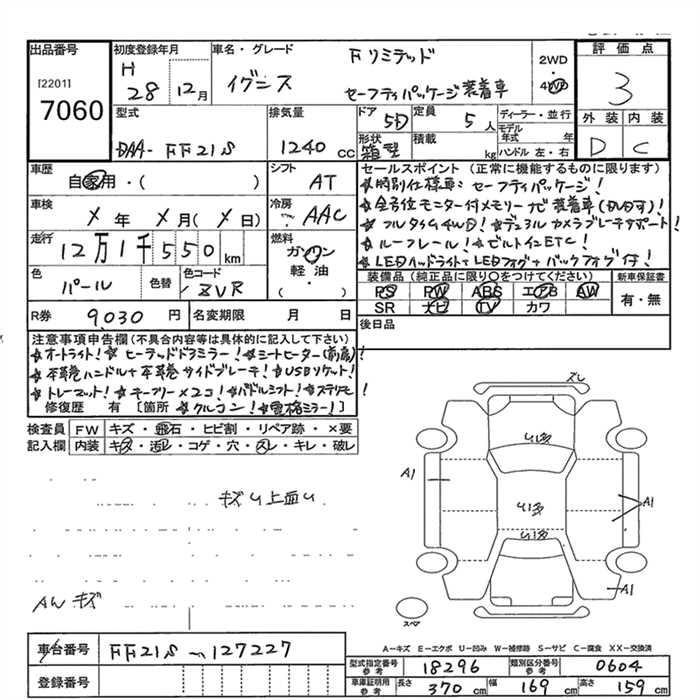 出品番号
[2201]
7060
初度登録年月
H
28 12月
車名・グレード
イグニス
Fリミテッド
セーフティパッケージ装着車
2WD
4WD
評価点
3
外装 内装
D C
型式
DAA- FF21S
排気量
1240 cc
ドア
5D
定員
5人
形状
箱型
積載
kg
ディーラー・並行
モデル年式 年
ハンドル 左・右
車歴
自家用・( )
シフト
AT
車検
X年 X月(X日)
冷房
AAC
走行
12万1千550km
燃料
ガソリン
軽油
( )
色
パール
色替
色コード
ZVR
R券
9,030円
名変期限 月 日
セールスポイント(正常に機能するものに限ります)
★特別仕様車:セーフティパッケージ!
★全方位モニター付メモリーナビ装着車(DVD可)!
★フルタイム4WD!★デュアルカメラブレーキサポート!
★ルーフレール!★ビルトインETC!
★LEDヘッドライト+LEDフォグ+バックフォグ付!
装備品(純正品に限り○をつけてください)
PS PW ABS エアB AW
SR ナビ TV カワ
新車保証書
有・無
後日品
注意事項申告欄(不具合内容等は具体的に記入して下さい)
★オートライト!★ヒーテッドドアミラー!★シートヒーター(前席)!
★本革巻ハンドル+本革巻サイドブレーキ!★USBソケット!
★トレーマット!★キーフリー×2コ!★パドルシフト!★ステリモ!
修復歴 有 [箇所 ★クルコン!★電格ミラー!]
検査員記入欄
FW キズ・飛石・ヒビ割・リペア跡・×要
内装 キズ・汚レ・コゲ・穴・スレ・キレ・破レ
キズU上面U
AWキズ
ズレ
U1多
A1
U1多
A1
U1多
A1
スペア
A-キズ E-エクボ U-凹み W-補修跡 S-サビ C-腐食 XX-交換済
車台番号
FF21S-127227
登録番号
型式指定番号 参考
18296
類別区分番号 参考
0604
車庫証明用 参考
長さ 370cm 幅 169cm 高さ 159cm